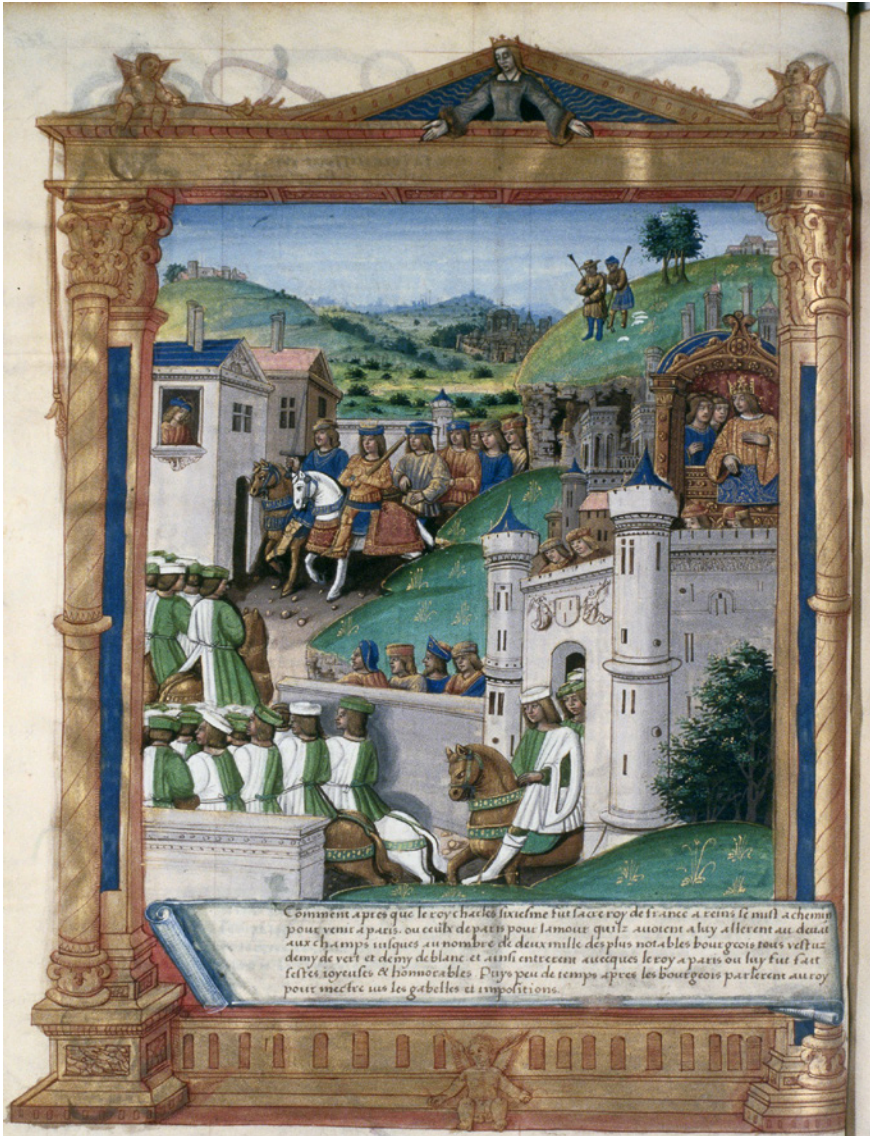 Comment apres que le roy charles sixiesme fut sacre roy de france a reins se mist a chemin
pour venir a paris. ou ceulx de paris pour lamour quilz auoient a luy allerent au deuāt
aux champs iusques au nombre de deux mille des plus notables bourgeois tous vestuz
demy de vert et demy de blanc et ainsi entrerent auecques le roy a paris ou luy fut fait
festes ioyeuses & honnorables Puys peu de temps apres les bourgeois parlerent au roy
pour mectre ius les gabelles et impositions